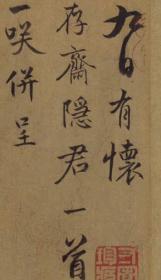 九日有懷
存齋隱君一首
一咲併呈